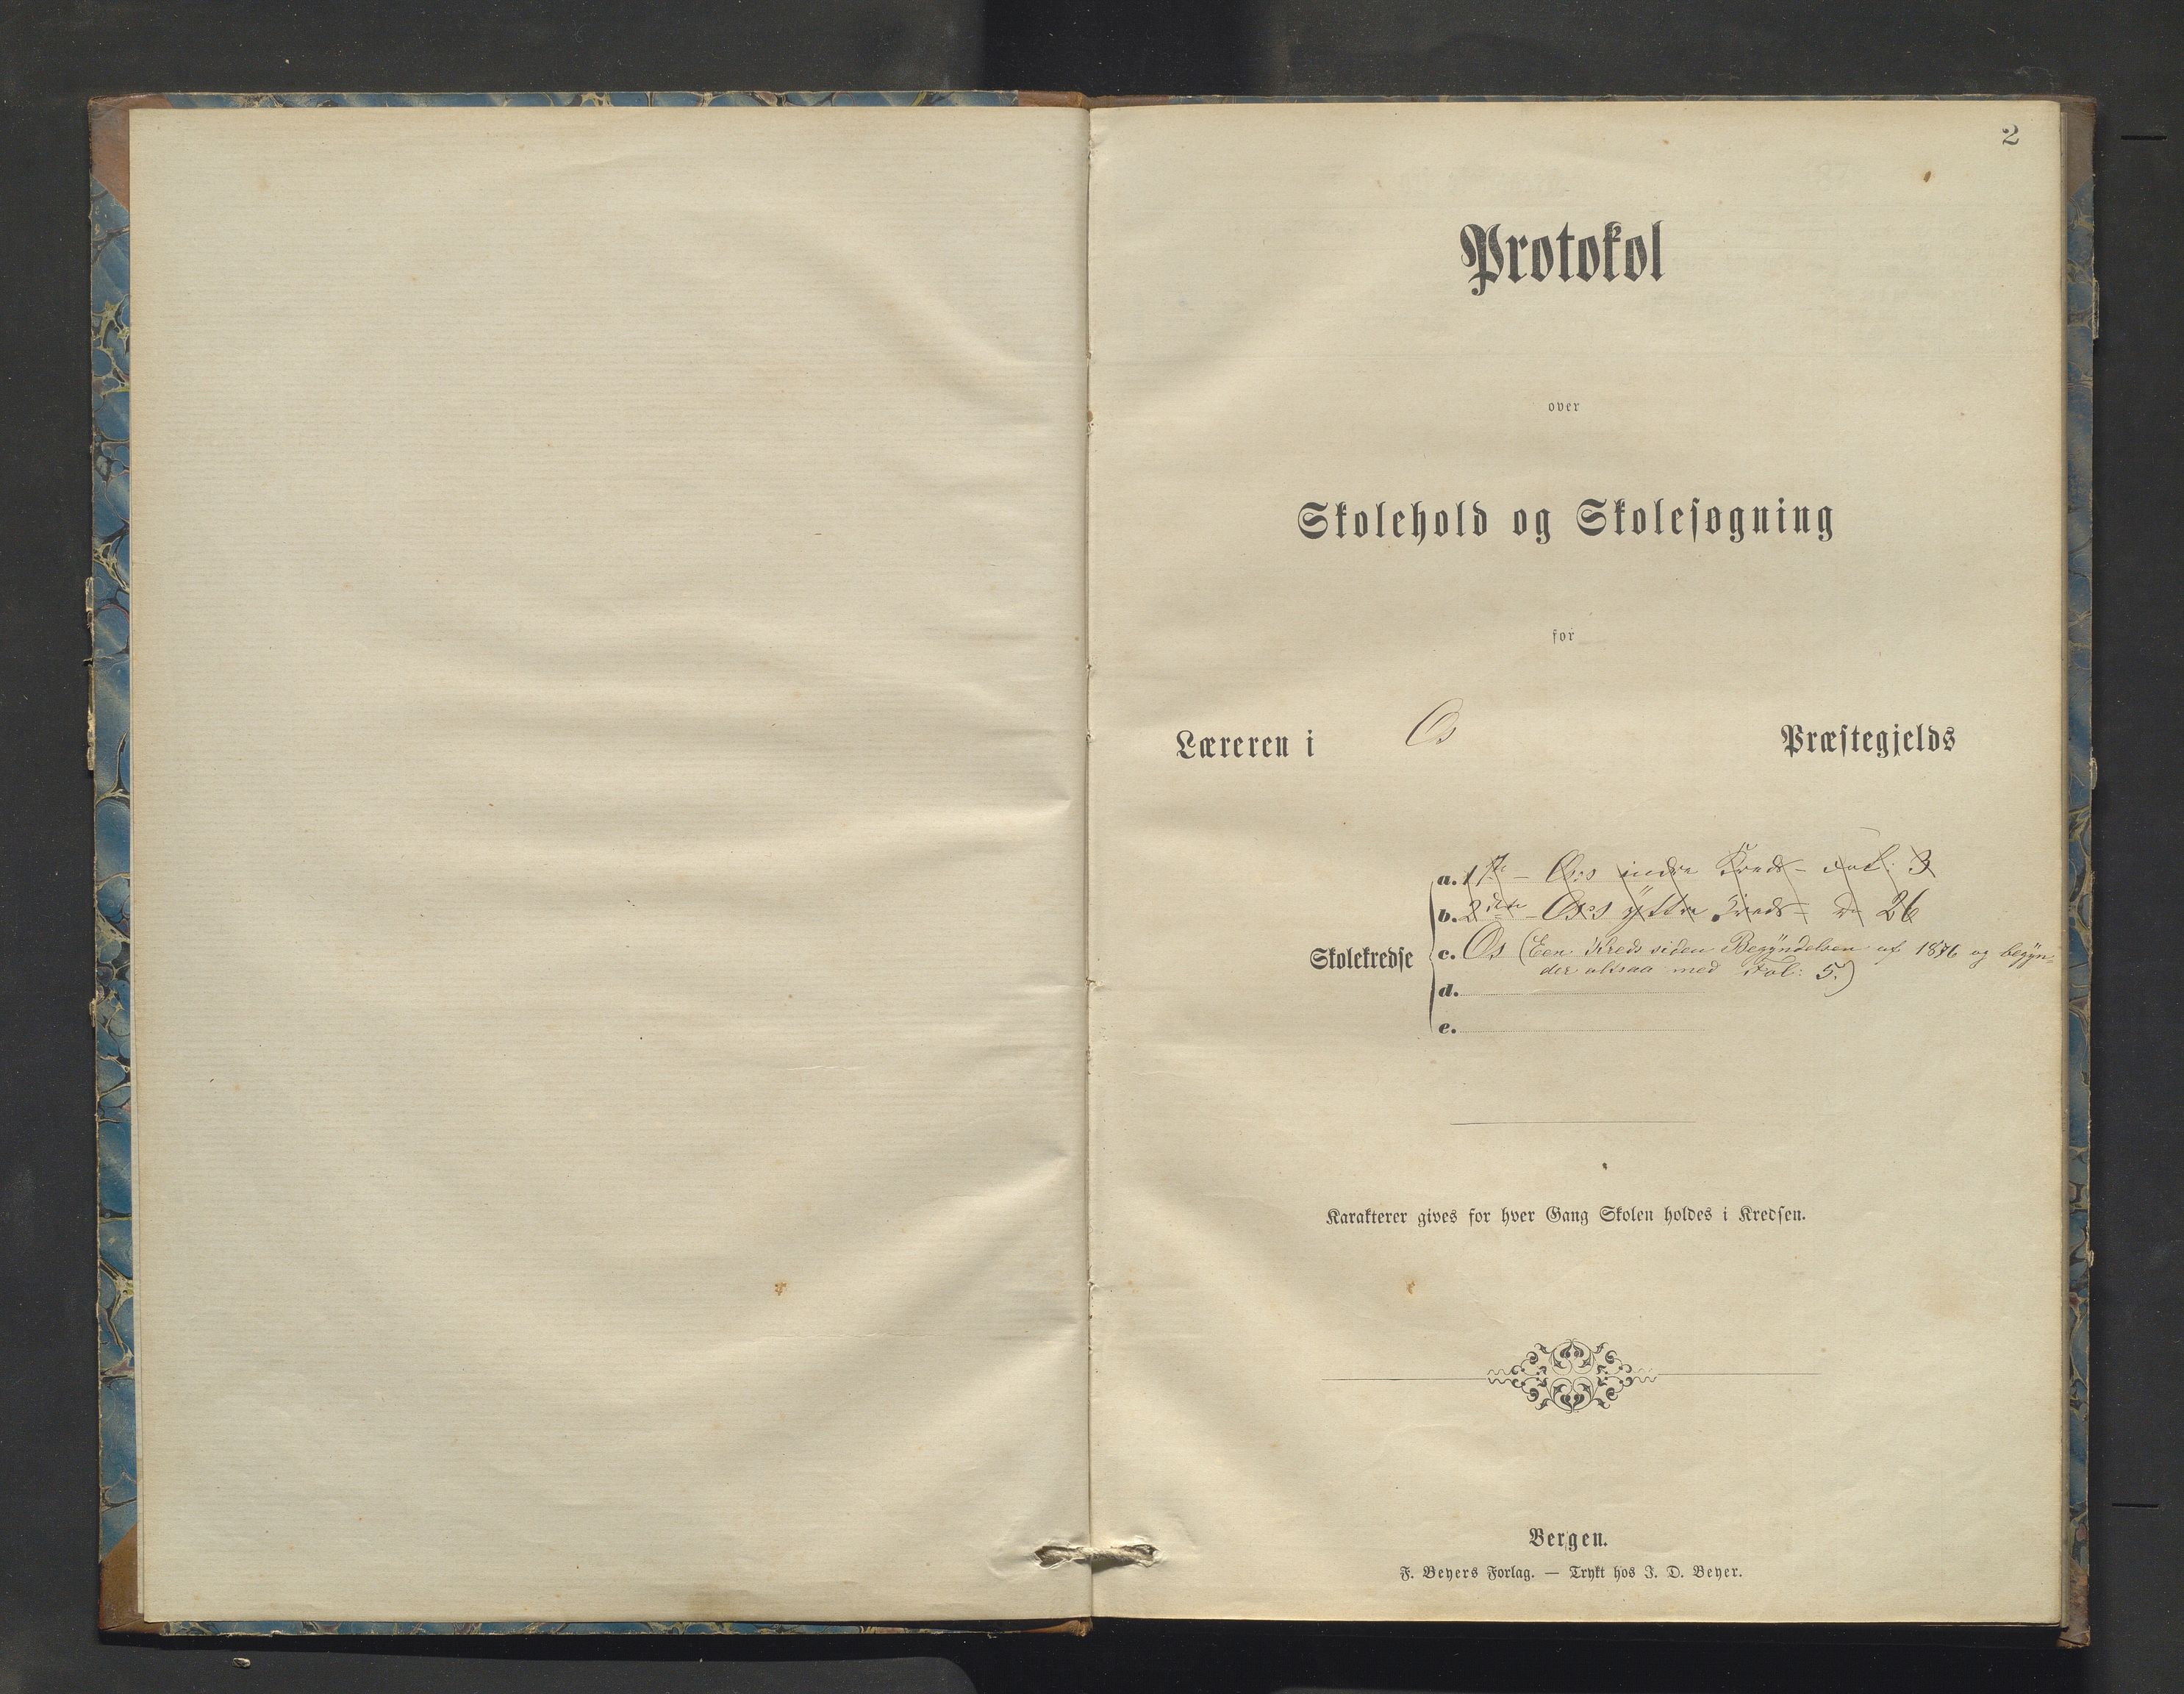 2
Protokol
over
Skolehold og Skolesøgning
for
Læreren i Os Præstegjelds
Skolekredse
a. 1ste – Os's indre Kreds – Fol: 3
b. 2den – Os's ÿttre Kreds – do 26
c. Os (Een Kreds siden Begÿndelsen af 1876 og begÿn-
der altsaa med Fol: 5.)
d.
e.
Karakterer gives for hver Gang Skolen holdes i Kredsen.
Bergen.
F. Beyers Forlag. — Trykt hos J. D. Beyer.